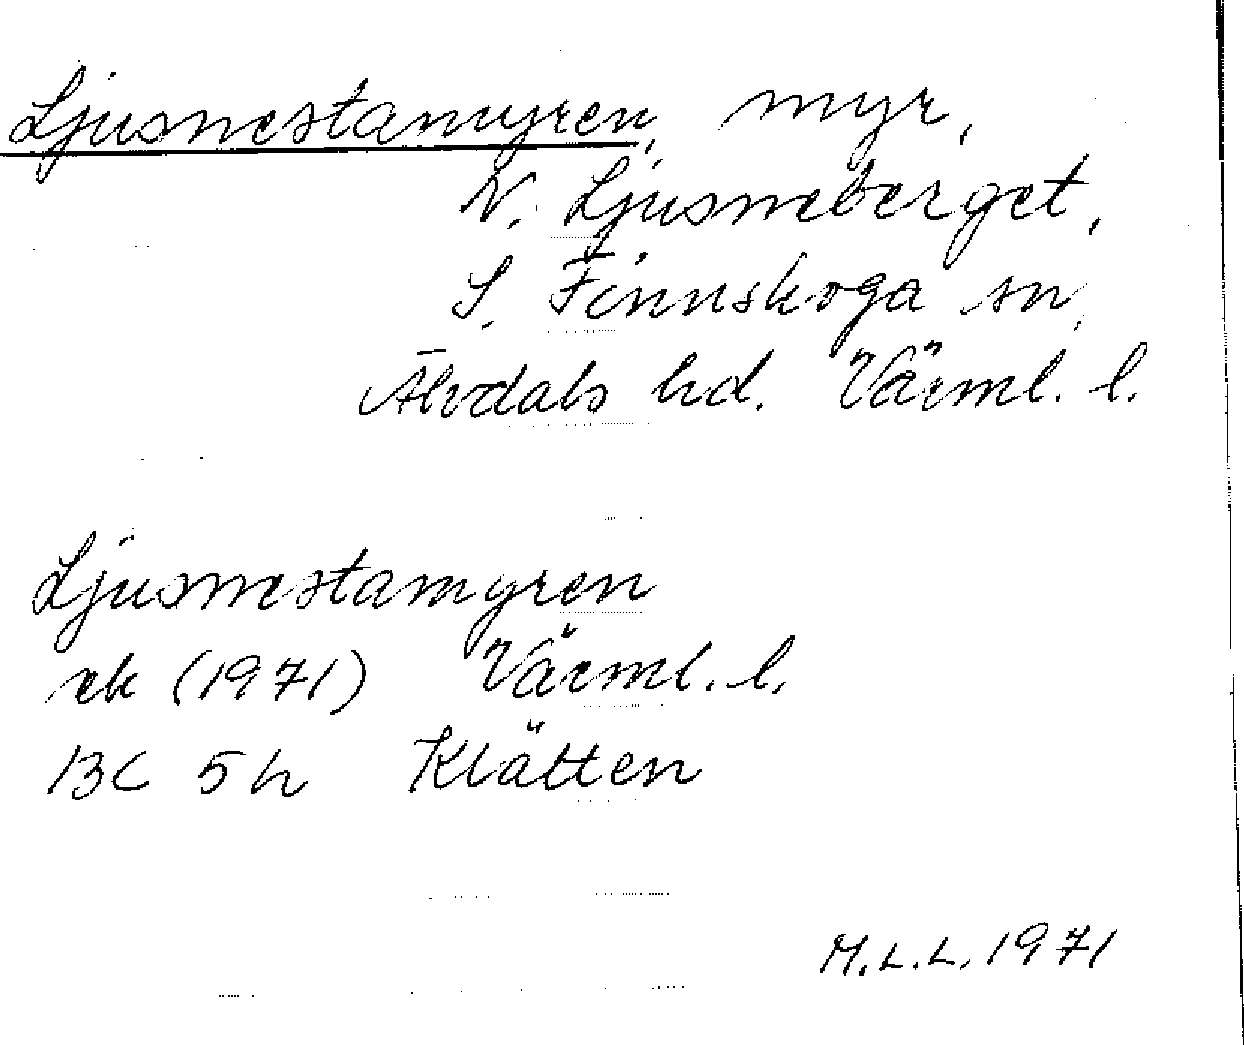 Ljusnestamyren, myr,
N. Ljusneberget,
S. Finnskoga sn,
Älvdals hd. Värml. l.
Ljusnestamyren
ek (1971) Värml. l.
13C 5h Klätten
M.L.L. 1971